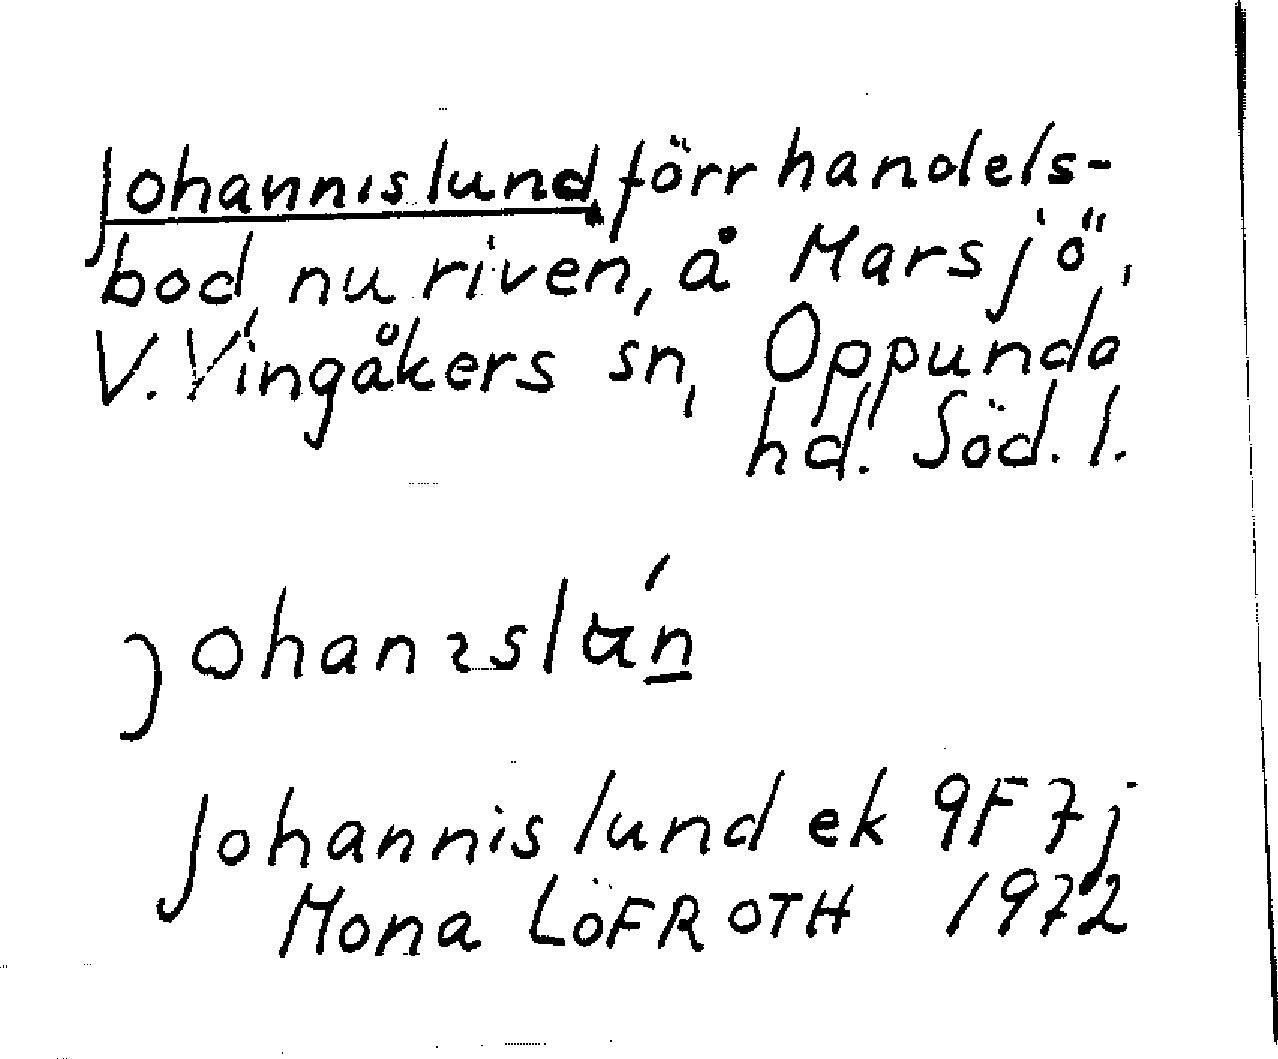 Johannislund, förr handels-
bod, nu riven, å Marsjö,
V. Vingåkers sn, Oppunda
hd. Söd. l.
johanɪslu̇́n
Johannislund ek 9F7j
Mona LöFROTH 1972